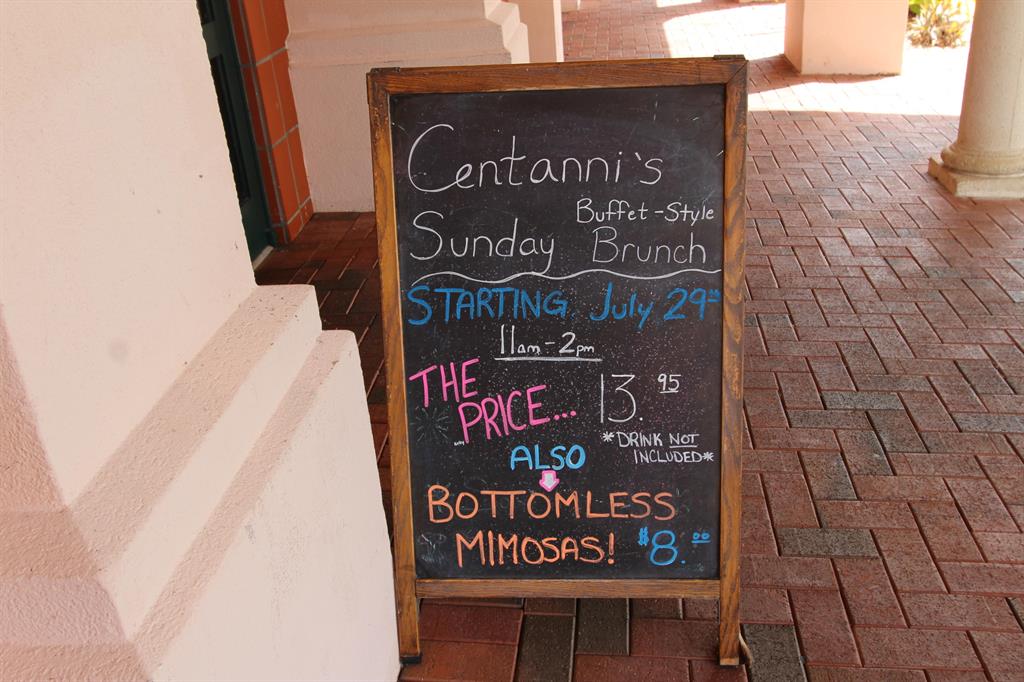 Centanni's
Buffet-Style
Sunday Brunch
STARTING July 29th
11am-2pm
THE
PRICE... 13.95
*DRINK NOT
INCLUDED*
ALSO
BOTTOMLESS
MIMOSAS! $8.00